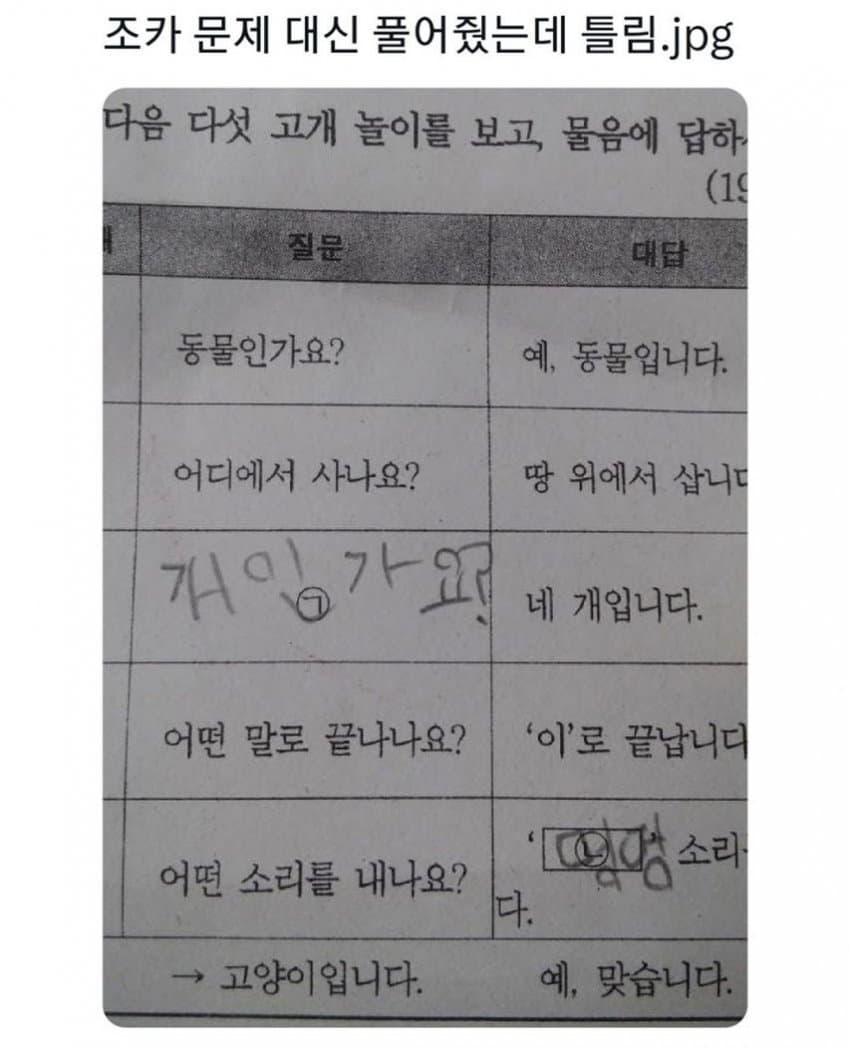 조카 문제 대신 풀어줬는데 틀림.jpg
다음 다섯 고개 놀이를 보고, 물음에 답하
(19
질문 대답
동물인가요? 예, 동물입니다.
어디에서 사나요? 땅 위에서 삽니
개인가요? ㉠ 네 개입니다.
어떤 말로 끝나나요? ‘이’로 끝납니다
어떤 소리를 내나요? ‘ ㉡ 야옹 ’ 소리
다.
→ 고양이입니다. 예, 맞습니다.